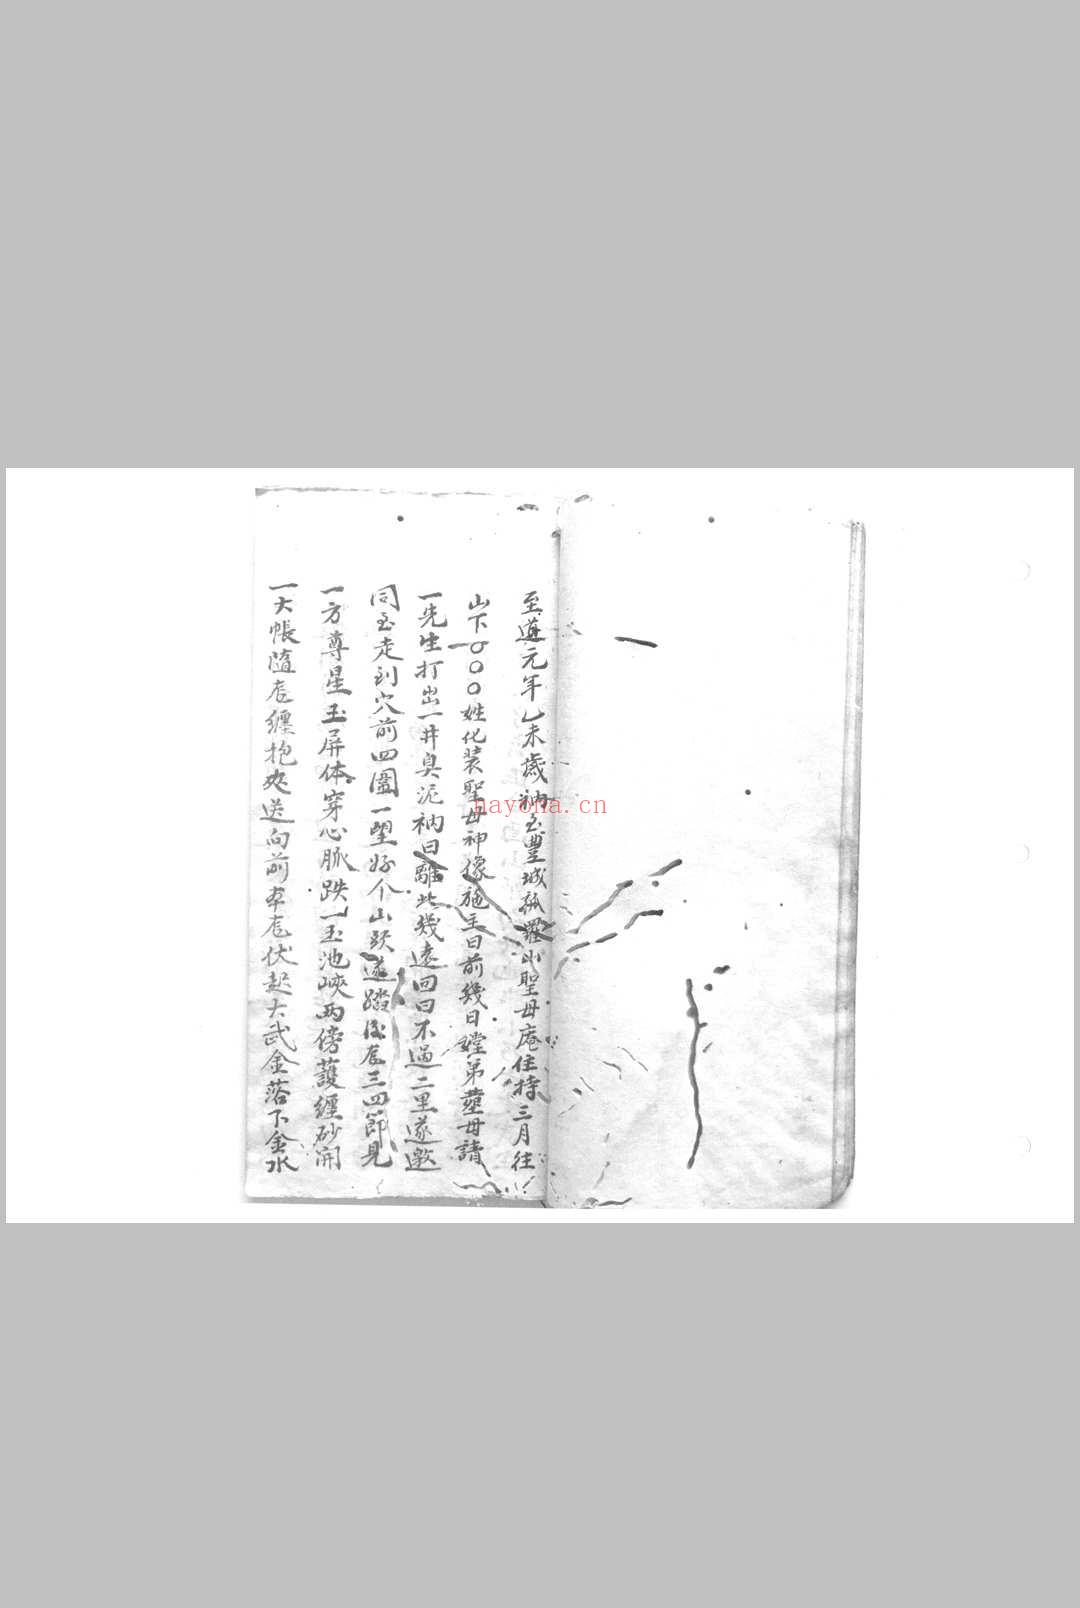 至道元年乙未歲衲至豐城孤羅山聖母庵住持三月往
山下一○○○姓化装聖母神像施主曰前幾日堂弟塟母請
一先生打出一井臭泥衲曰離此幾遠回曰不過二里遂邀
同至走到穴前四圍一望好个山頭遂踏後龙三四節見
一方尊星玉屏体穿心脈跌一玉池峽两傍護纏砂開
一大帳隨龙纏抱夾送向前本龙伏起大武金落下金水
nayona.cn